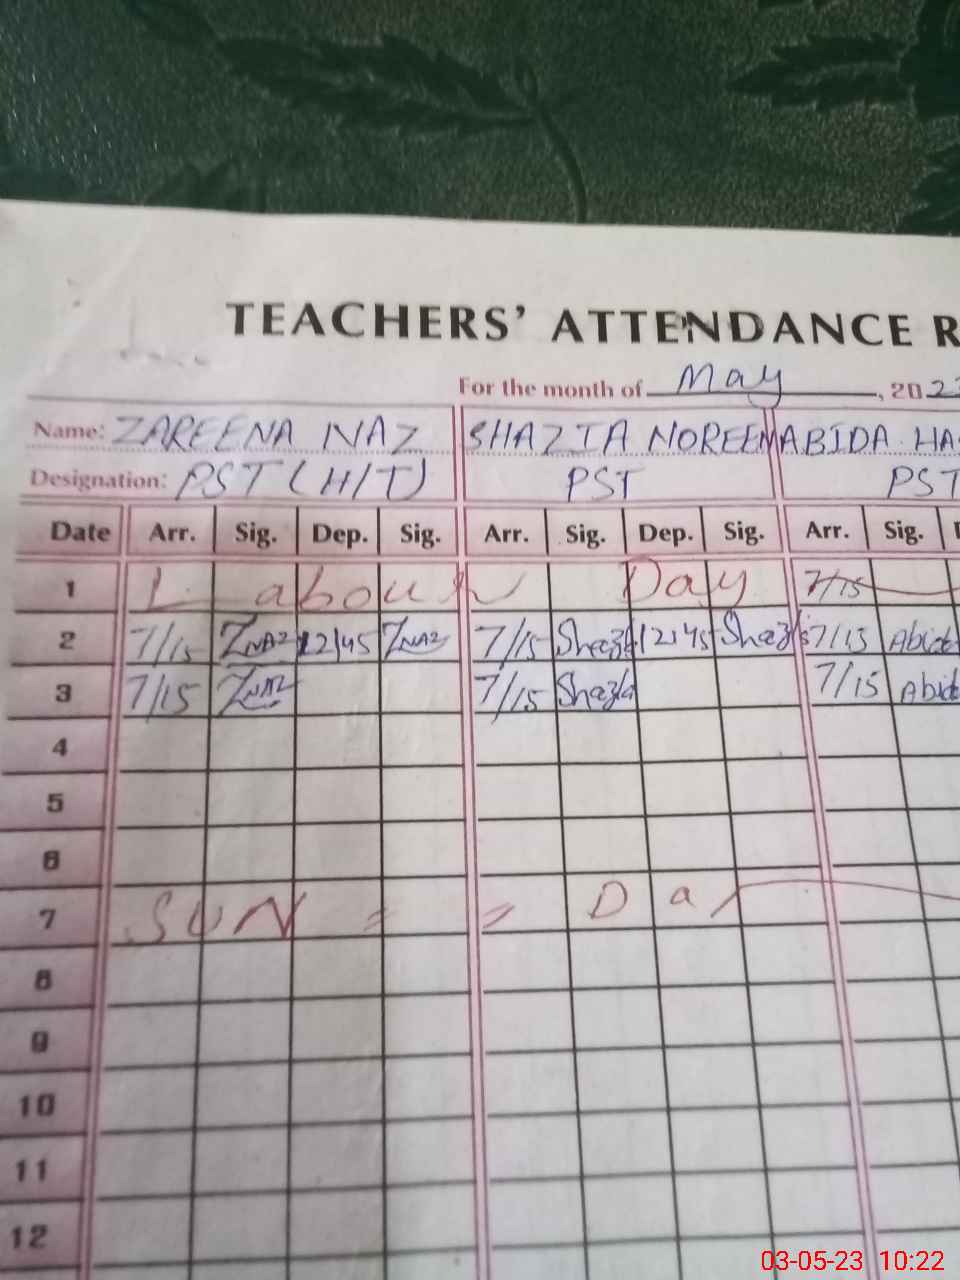 TEACHERS' ATTENDANCE R
For the month of May, 2023
Name: ZAREENA NAZ SHAZIA NOREEN ABIDA HA
Designation: PST (H/T) PST PST
Date Arr. Sig. Dep. Sig. Arr. Sig. Dep. Sig. Arr. Sig.
1 Labour Day 7/15
2 7/15 ZNAZ 12/45 ZNAZ 7/15 Shazia 12/45 Shazia 7/15 Abid
3 7/15 ZNAZ 7/15 Shazia 7/15 Abid
4
5
6
7 SUN = = Day
8
9
10
11
12
03-05-23 10:22